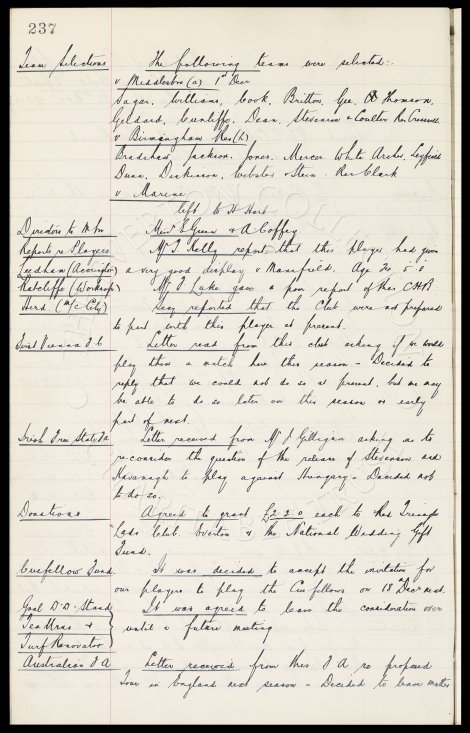 237
Team Selections The following teams were selected:-
v Middlesbro (a) 1st Dec
Sagar, Williams, Cook, Britton, Gee, Thomson,
Geldard, Cunliffe, Dean, Stevenson & Coulter Res Cresswell
v Birmingham Res (h)
Bradshaw Jackson, Jones, Mercer White Archer, Leyfield
Dunn, Dickinson, Webster & Stein - Res Clark
v Marine
left to H Hart
Directors to M/bro Messrs Green & A Coffey
Reports re Players Mr T. Kelly reported that this player had given
Leedham (Accrington) a very good display v Mansfield. Age 20, 5' 8
Ratcliffe (Worksop) Mr T. Lake gave a poor report of this C.H.B
Herd. (M/c City) Secy reported that the Club were not prepared
to part with this player at present.
First Vienna F.C Letter read from this club asking if we would
play them a match here this season - Decided to
reply that we could not do so at present, but we may
be able to do so later on this season or early
part of next.
Irish Free State F.A Letter received from Mr J Gilligan asking us to
re-consider the question of the release of Stevenson and
Kavanagh to play against Hungary - Decided not
to do so.
Donations Agreed to grant £2.2.0 each to
Lads Club. Everton & the National Wedding Gift
Fund.
Cuefellow Fund. It was decided to accept the invitation for
our players to play the Cuefellows on 18th Dec next.
Goal D.D. Stand It was agreed to leave the consideration over
Tea Urns & until a future meeting
Turf Renovator
Australian F.A Letter received from this F A re proposed
Tour in England next season - Decided to leave matter